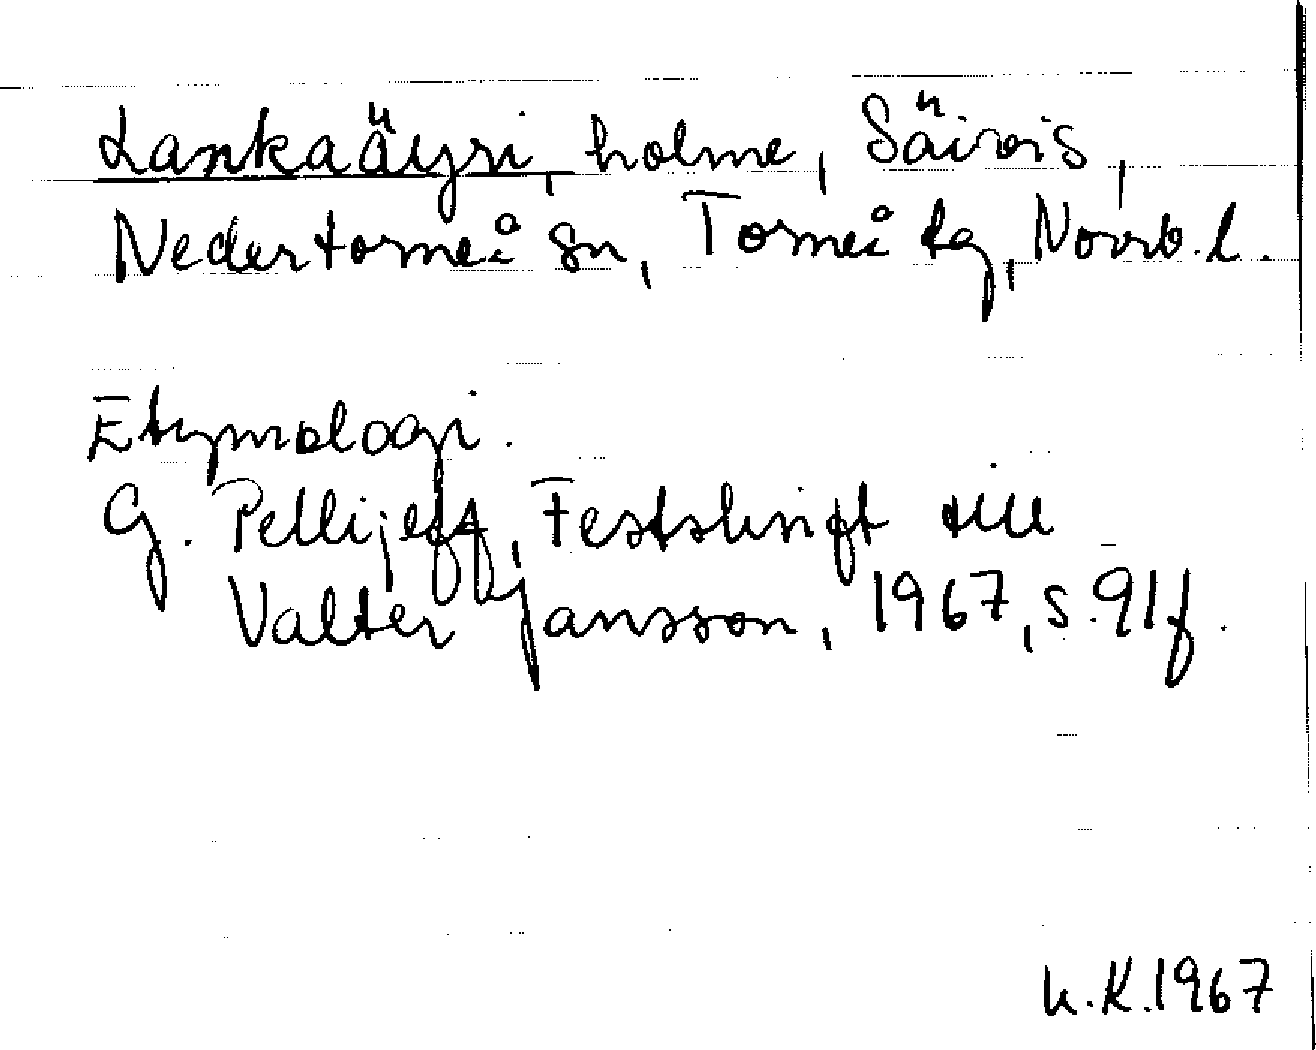 Lankaäyri, holme, Säivis,
Nedertorneå sn, Torneå tg, Norrb. l.
Etymologi.
G. Pellijeff, Festskrift till
Valter Jansson, 1967, s. 91f.
h.K.1967